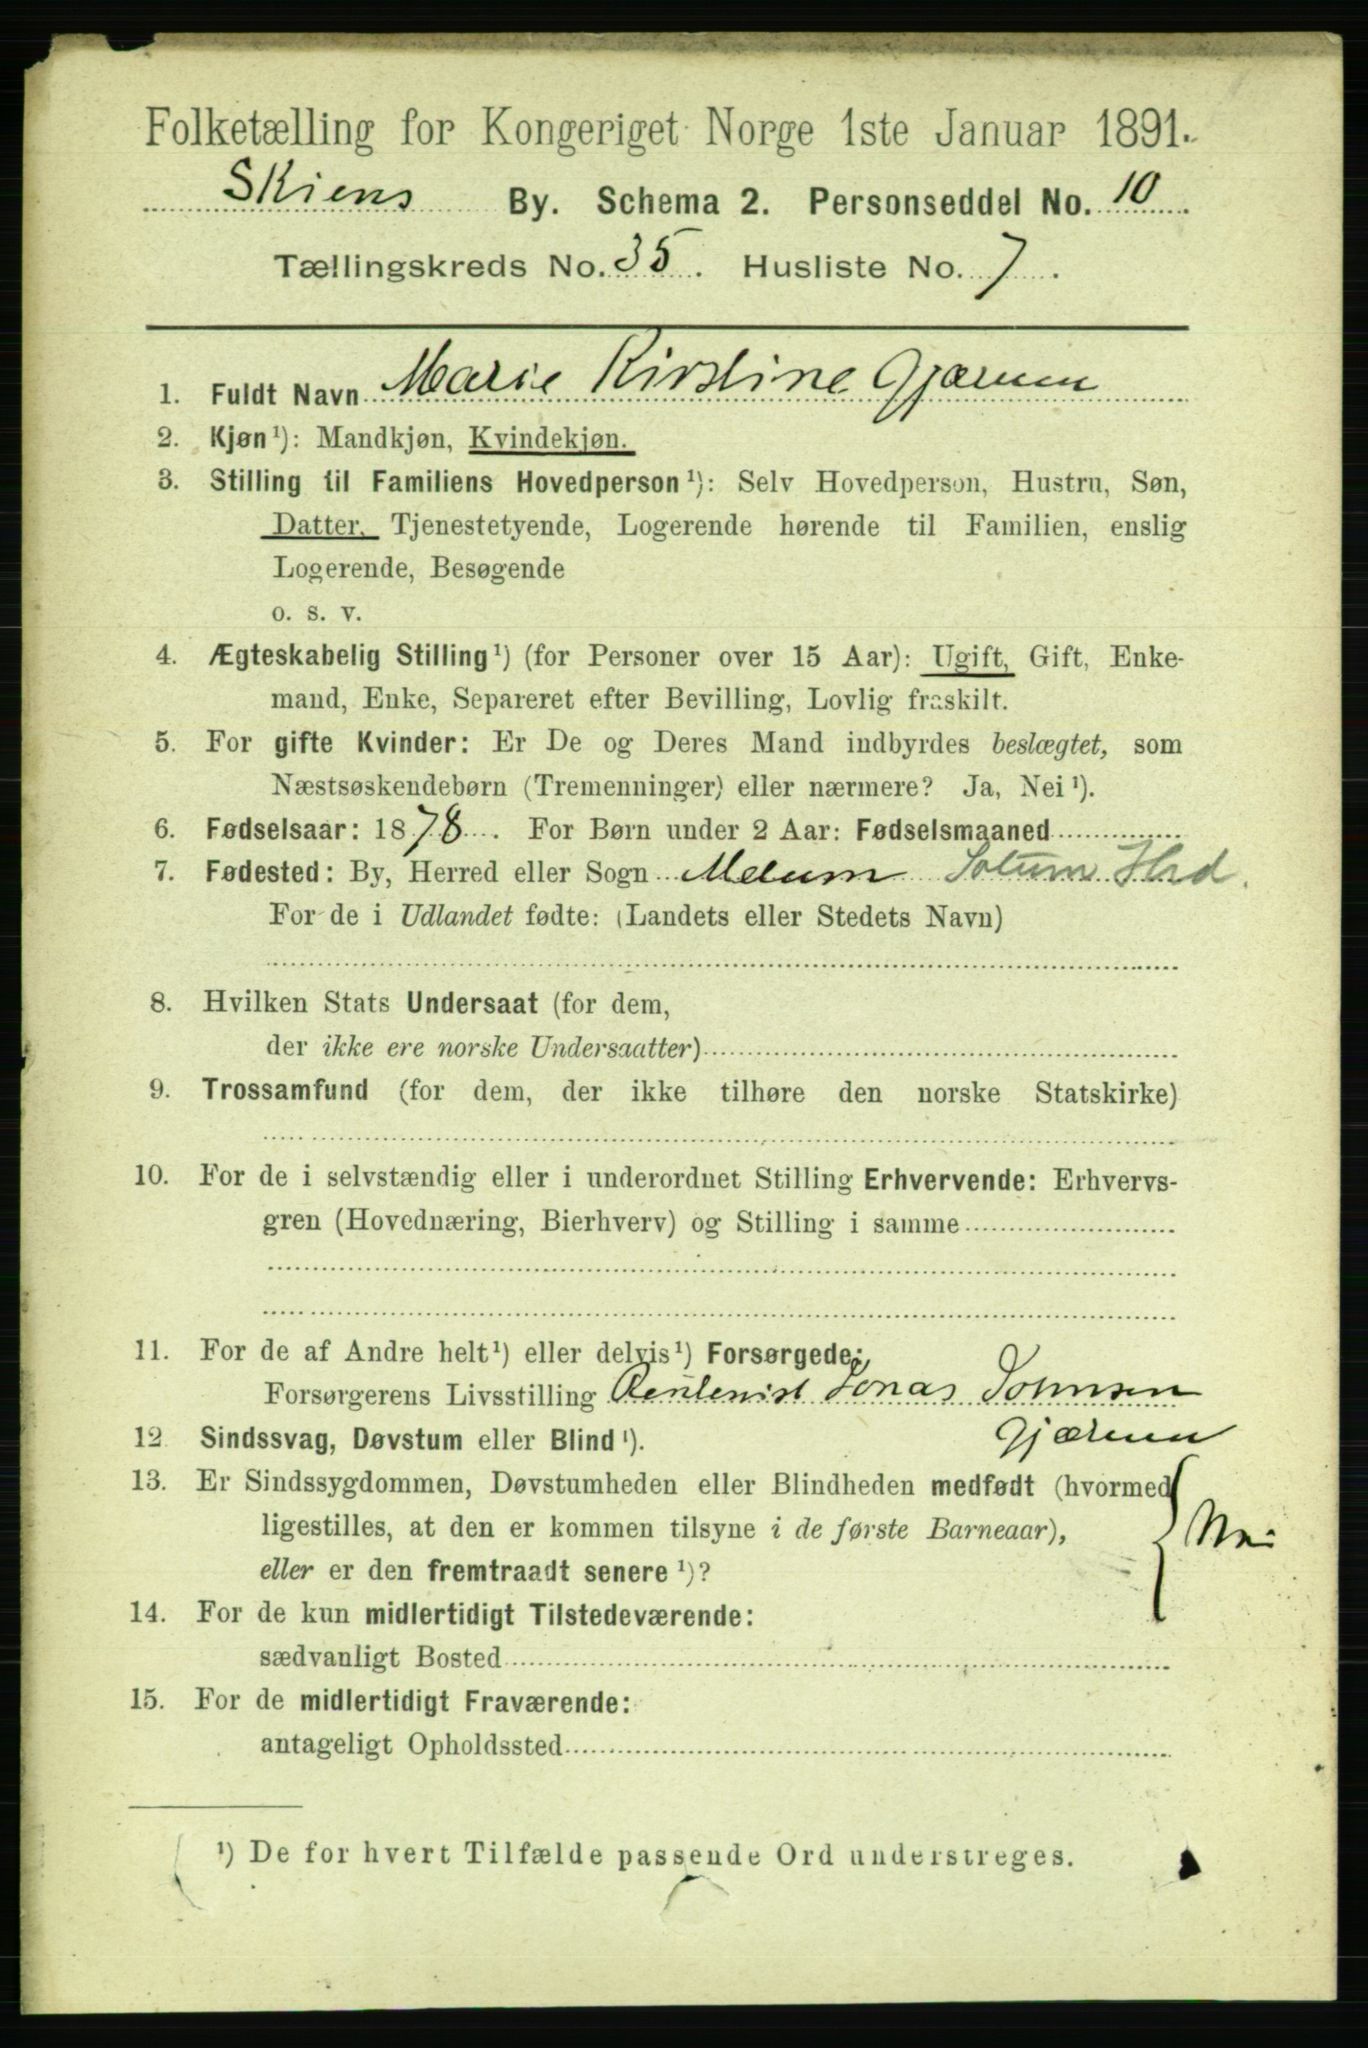 Folketælling for Kongeriget Norge 1ste Januar 1891.
Skiens By. Schema 2. Personseddel No. 10
Tællingskreds No. 35. Husliste No. 7.
1. Fuldt Navn Marie Kirstine Gjærum
2. Kjøn¹): Mandkjøn, Kvindekjøn.
3. Stilling til Familiens Hovedperson¹): Selv Hovedperson, Hustru, Søn,
Datter, Tjenestetyende, Logerende hørende til Familien, enslig
Logerende, Besøgende
o. s. v.
4. Ægteskabelig Stilling¹) (for Personer over 15 Aar): Ugift, Gift, Enke-
mand, Enke, Separeret efter Bevilling, Lovlig fraskilt.
5. For gifte Kvinder: Er De og Deres Mand indbyrdes beslægtet, som
Næstsøskendebørn (Tremenninger) eller nærmere? Ja, Nei¹).
6. Fødselsaar: 1878. For Børn under 2 Aar: Fødselsmaaned
7. Fødested: By, Herred eller Sogn Melum Solum Hrd.
For de i Udlandet fødte: (Landets eller Stedets Navn)
8. Hvilken Stats Undersaat (for dem,
der ikke ere norske Undersaatter)
9. Trossamfund (for dem, der ikke tilhøre den norske Statskirke)
10. For de i selvstændig eller i underordnet Stilling Erhvervende: Erhvervs-
gren (Hovednæring, Bierhverv) og Stilling i samme
11. For de af Andre helt¹) eller delvis¹) Forsørgede:
Forsørgerens Livsstilling Rentenist Jonas Johnsen
Gjærum
12 Sindssvag, Døvstum eller Blind¹).
13. Er Sindssygdommen, Døvstumheden eller Blindheden medfødt (hvormed
ligestilles, at den er kommen tilsyne i de første Barneaar),
eller er den fremtraadt senere¹)?
Nei
14. For de kun midlertidigt Tilstedeværende:
sædvanligt Bosted
15. For de midlertidigt Fraværende:
antageligt Opholdssted
¹) De for hvert Tilfælde passende Ord understreges.